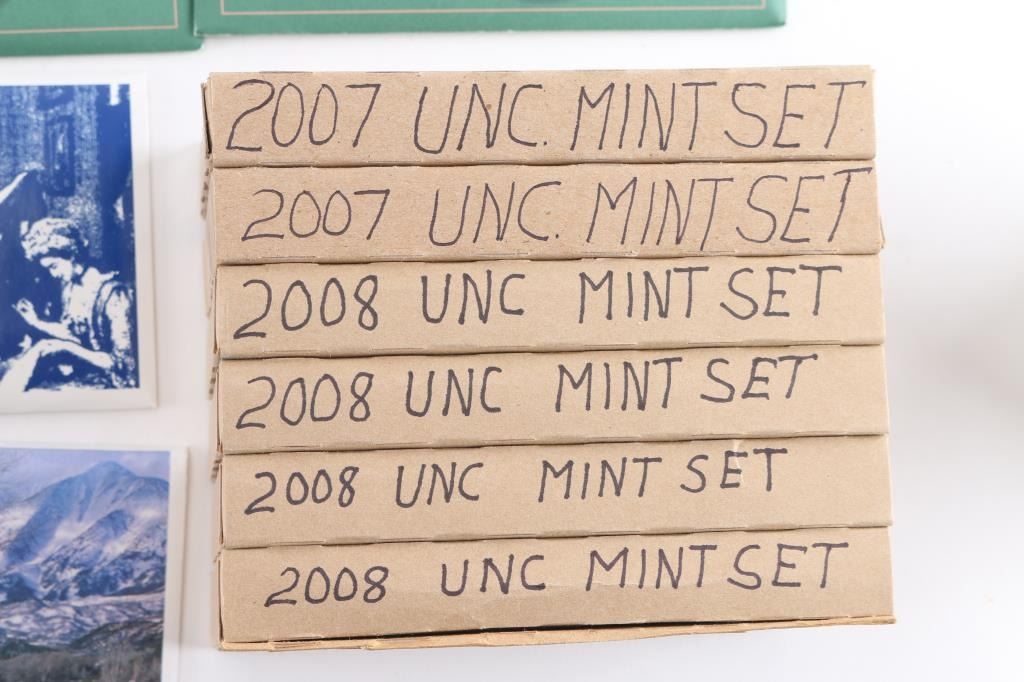 2007 UNC. MINT SET
2007 UNC. MINT SET
2008 UNC MINT SET
2008 UNC MINT SET
2008 UNC MINT SET
2008 UNC MINT SET